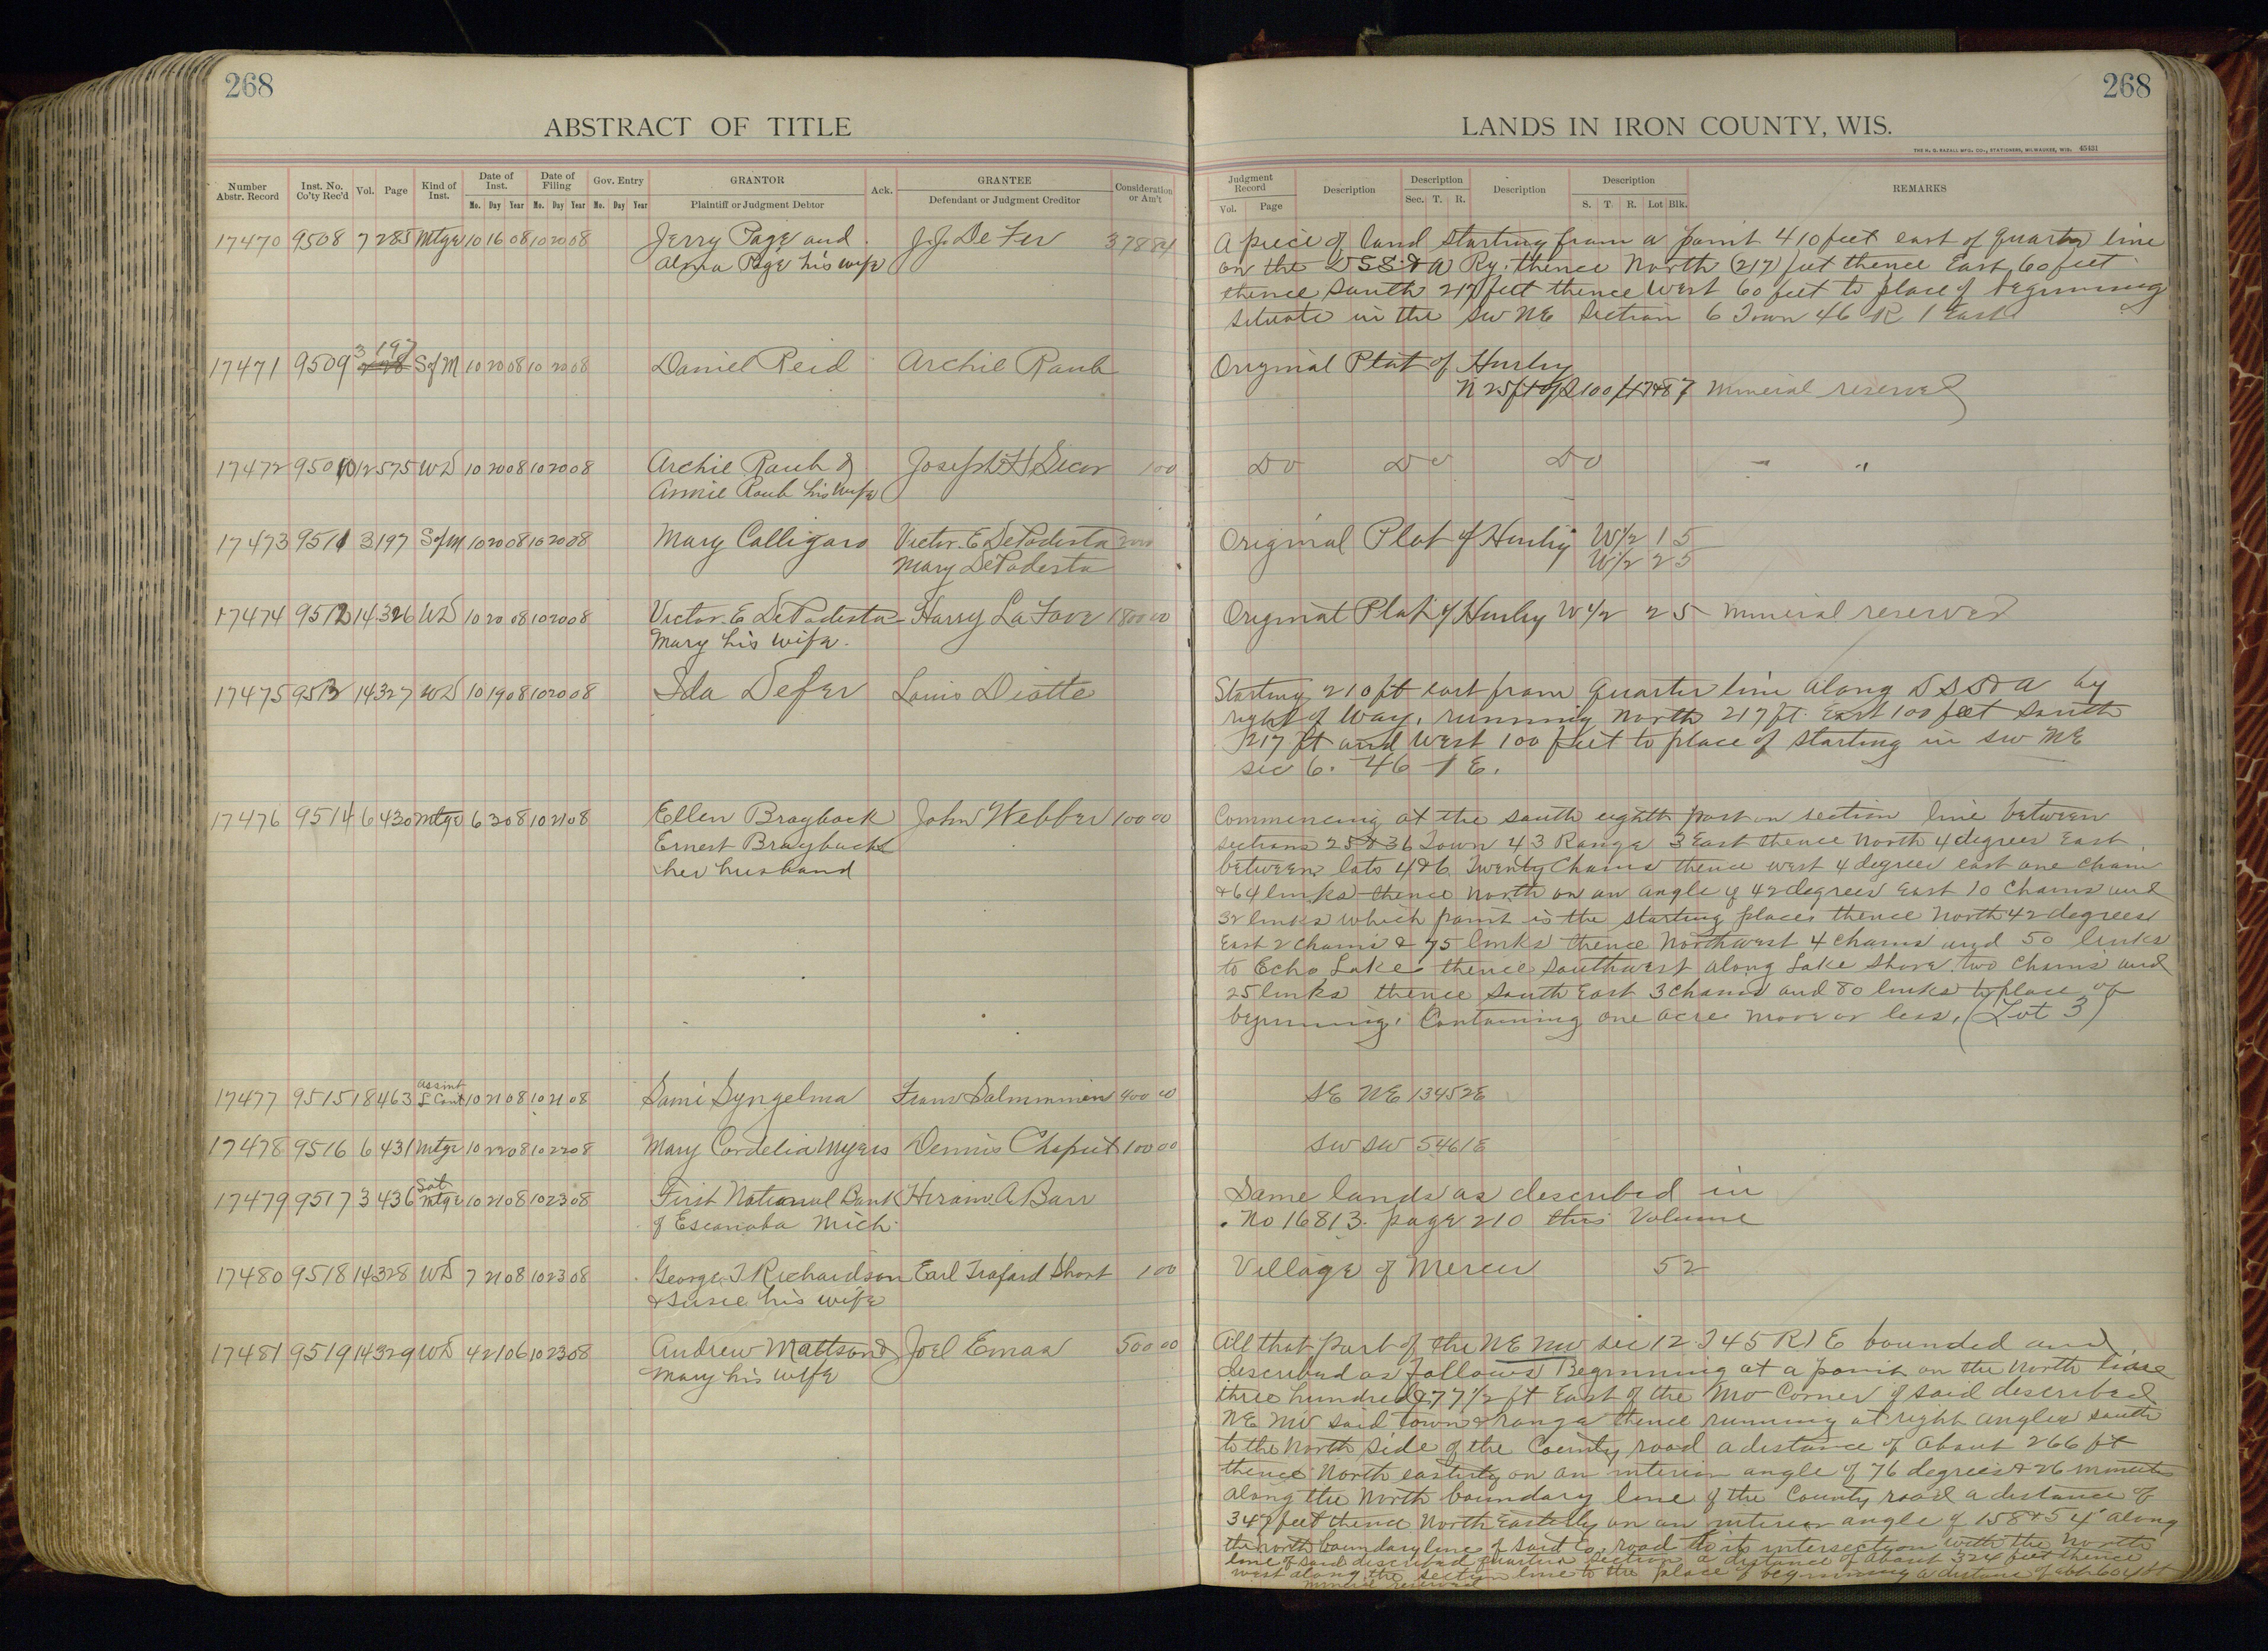 268
ABSTRACT OF TITLE
Number Abstr. Record Inst. No. Co'ty Rec'd Vol. Page Kind of Inst. Date of Inst. Mo. Day Year Date of Filing Mo. Day Year Gov. Entry Mo. Day Year GRANTOR Plaintiff or Judgment Debtor Ack. GRANTEE Defendant or Judgment Creditor Consideration or Am't
17470 9508 7 285 Mtge 10 16 08 10 20 08 Jerry Page and J.J. De Fer 378 84
Alma Page his wife
3 197
17471 9509 S of M 10 20 08 10 20 08 Daniel Reid Archie Raub
17472 9510 12 575 WD 10 20 08 10 20 08 Archie Raub & Joseph H Secor 1 00
Annie Raub his wife
17473 9511 3 197 S of M 10 20 08 10 20 08 Mary Calligaro Victor E DePodesta
Mary DePodesta
17474 9512 14 326 WD 10 20 08 10 20 08 Victor E DePodesta Harry LaFave 1800 00
Mary his wife.
17475 9513 14 327 WD 10 19 08 10 20 08 Ida Defer Louis Diotte
17476 9514 6 430 Mtge 6 3 08 10 21 08 Ellen Brayback John Webber 100 00
Ernest Brayback
her husband
Assmt
17477 9515 18 463 L Cont 10 21 08 10 21 08 Sami Syngelma Frans Salmminen 400 00
17478 9516 6 431 Mtge 10 22 08 10 22 08 Mary Cordelia Myers Dennis Chaput 100 00
Sat
17479 9517 3 436 Mtge 10 21 08 10 23 08 First National Bank Hiram A Barr
of Escanaba Mich.
17480 9518 14 328 WD 7 21 08 10 23 08 George T Richardson Earl Traford Short 1 00
& Susie his wife
17481 9519 14 329 WD 4 21 06 10 23 08 Andrew Mattson & Joel Emaa 500 00
Mary his wife
268
LANDS IN IRON COUNTY, WIS.
THE H. G. RAZALL MFG. CO., STATIONERS, MILWAUKEE, WIS. 45431
Judgment Record Vol. Page Description Description Sec. T. R. Description Description S. T. R. Lot Blk. REMARKS
A piece of land starting from a point 410 feet east of quarter line
on the DSS & A Ry. thence North (217) feet thence East 60 feet
thence South 217 feet thence West 60 feet to place of beginning
situate in the SW NE Section 6 Town 46 R 1 East
Original Plat of Hurley
N 25 ft of S 100 ft 7&8 7 Mineral reserved
Do Do Do " "
Original Plat of Hurley W1/2 1 5
W1/2 2 5
Original Plat of Hurley W1/2 2 5 Mineral reserved
Starting 210 ft east from quarter line along DSS & A by
right of way, running North 217 ft. East 100 feet South
217 ft and West 100 feet to place of starting in SW NE
sec 6. 46 1 E.
Commencing at the south eighth post on section line between
sections 25 & 36 Town 43 Range 3 East thence North 4 degrees East
between lots 4 & 6 Twenty Chains thence west 4 degrees east one chain
& 64 links thence North on an angle of 42 degrees East 10 Chains and
32 links which point is the starting place, thence North 42 degrees
East 2 chains & 75 links thence Northwest 4 chains and 50 links
to Echo Lake thence Southwest along Lake Shore two chains and
25 links thence South East 3 chains and 80 links to place of
beginning. Containing one acre more or less, (Lot 3)
SE NE 13 45 2E
SW SW 5 46 1E
Same lands as described in
No 16813. page 210 this Volume
Village of Mercer 5 2
All that part of the NE NW sec 12 T 45 R 1 E bounded and
described as follows Beginning at a point on the North line
three hundred & 77 1/2 ft East of the NW Corner of said described
NE NW said town & range thence running at right angles south
to the North side of the County road a distance of about 266 ft
thence North easterly on an interior angle of 76 degrees & 26 minutes
along the North boundary line of the County road a distance of
347 feet thence North Easterly on an interior angle of 158 & 54' along
the north boundary line of said Co. road to its intersection with the North
line of said described quarter section a distance of about 324 feet thence
west along the section line to the place of beginning a distance of abt 604 ft
mineral reserved